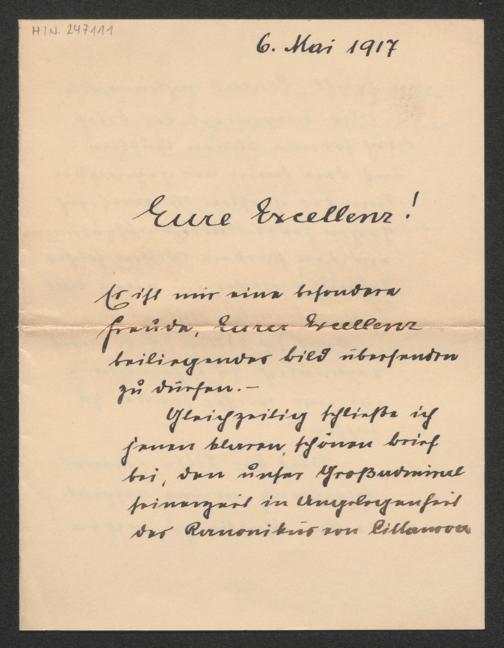 HIN. 247111
6. Mai 1917
Eure Excellenz!
Es ist mir eine besondere
Freude, Eurer Excellenz
beiliegendes Bild übersenden
zu dürfen.-
Gleichzeitig schließe ich
jenen klaren, schönen Brief
bei, den unser Großadmiral
seinerzeit in Angelegenheit
des Kanonikus von Cittanova